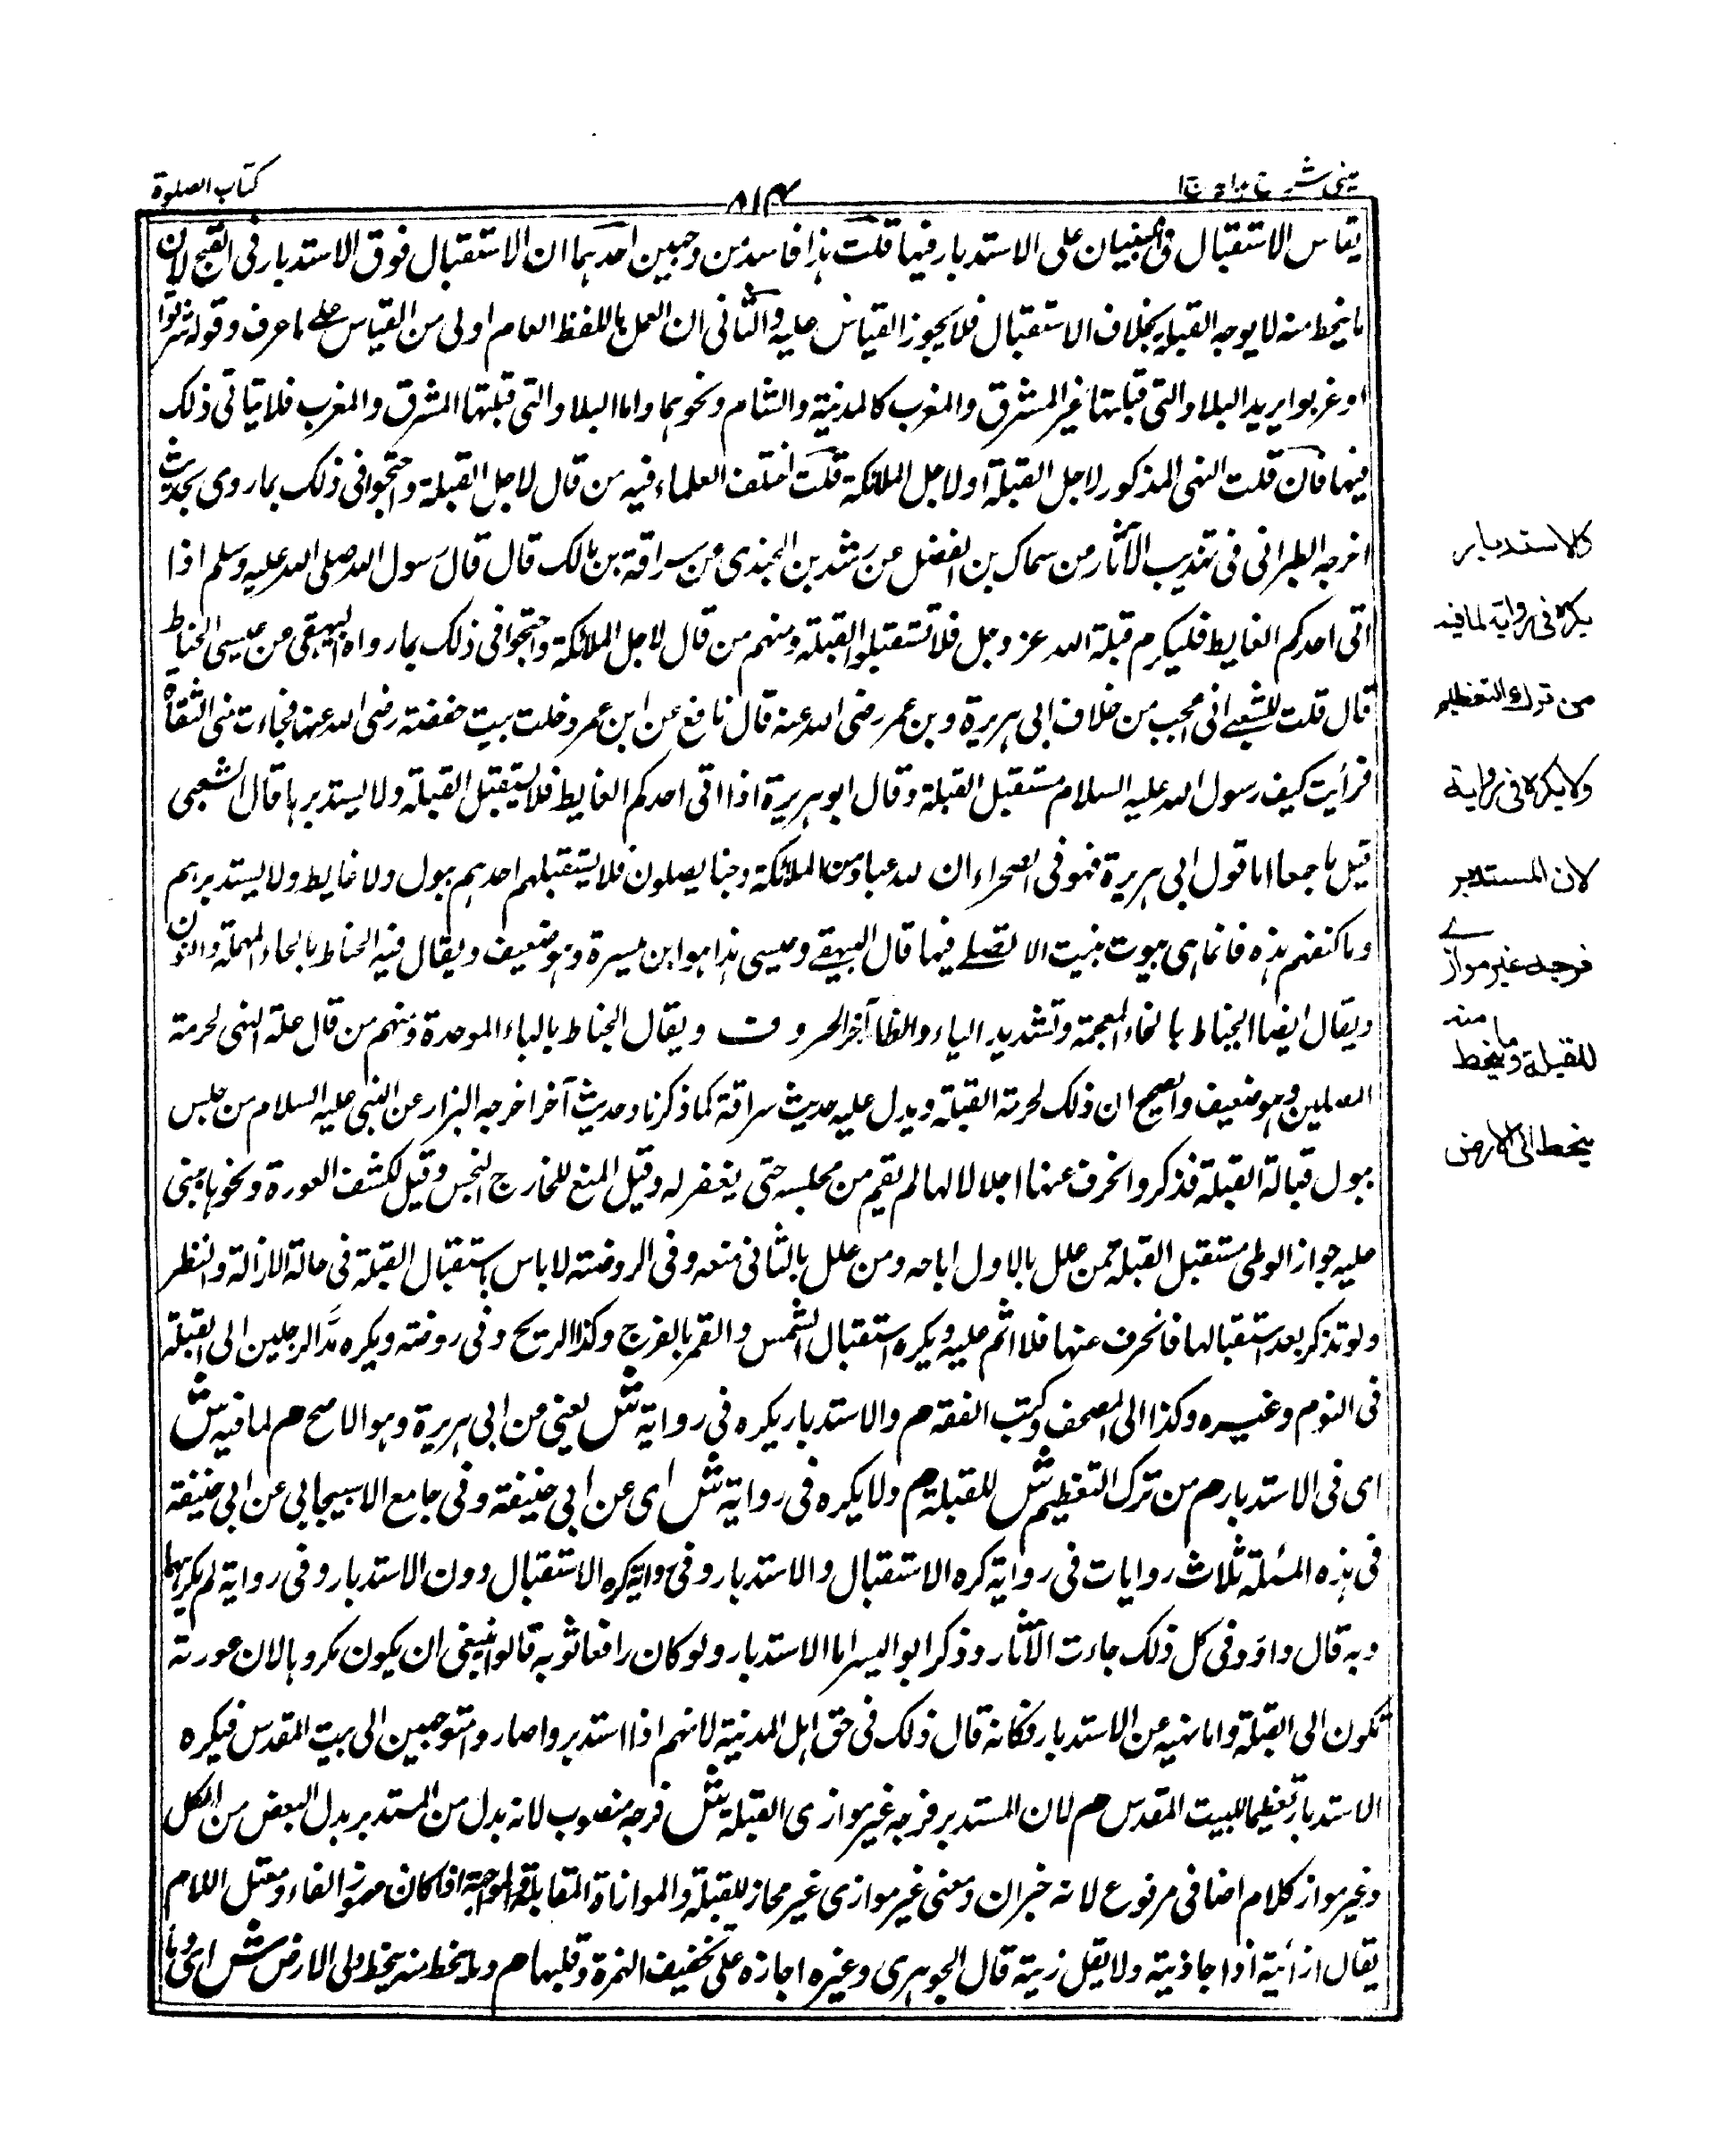 عینی شرح ہدایہ ج ا
۸۱۴
کتاب الصلوة
یقاس الاستقبال فی البنیان علی الاستدبار فیہا قلت ہذا فاسد من وجہین احدہما ان الاستقبال فوق الاستدبار فی القبح لان
ما ینحط منہ لا یوجہ القبلۃ بخلاف الاستقبال فلا یجوز القیاس علیہ والثانی ان العمل باللفظ العام اولی من القیاس علی ما عرف وقولہ شرقوا
او غربوا یرید البلاد التی قبلتہا غیر المشرق والمغرب کالمدینۃ والشام ونحوہما واما البلاد التی قبلتہا المشرق والمغرب فلا یتاتی ذلک
فیہا فان قلت النہی المذکور لاجل القبلۃ او لاجل الملائکۃ قلت اختلف العلماء فیہ من قال لاجل القبلۃ واحتجوا فی ذلک بما روی بحدیث
اخرجہ الطبرانی فی تہذیب الآثار من سماک بن الفضل عن رشد بن الجندی عن سراقۃ بن مالک قال قال رسول اللہ صلی اللہ علیہ وسلم اذا
اتی احدکم الغایط فلیکرم قبلۃ اللہ عز وجل فلا تستقبلوا القبلۃ ومنہم من قال لاجل الملائکۃ واحتجوا فی ذلک بما رواہ البیہقی من عیسی الخیاط
قال قلت للشعبی انی اعجب من خلاف ابی ہریرۃ وبن عمر رضی اللہ عنہ قال نافع عن ابن عمر دخلت بیت حفصۃ رضی اللہ عنہا فجاءت منی التفاتۃ
فرأیت کنیف رسول اللہ علیہ السلام مستقبل القبلۃ وقال ابو ہریرۃ اذا اتی احدکم الغایط فلا یستقبل القبلۃ ولا یستدبرہا قال الشعبی
قیل ما جمعا اما قول ابی ہریرۃ فہو فی الصحراء ان للہ عبادا من الملائکۃ وجنا یصلون فلا یستقبلہم احدہم ببول ولا غایط ولا یستدبرہم
وما کنفہم ہذہ فانما ہی بیوت بنیت الا لتصلی فیہا قال البیہقی وعیسی ہذا ہو ابن میسرۃ وہو ضعیف ویقال فیہ الحناط بالحاء المہملۃ والنون
ویقال ایضا الخیاط بالخاء المعجمۃ وتشدید الیاء والظا آخر الحروف ویقال الخباط بالباء الموحدۃ ومنہم من قال علۃ النہی لحرمۃ
المصلین وہو ضعیف والصحیح ان ذلک لحرمۃ القبلۃ ویدل علیہ حدیث سراقۃ کما ذکرنا وحدیث آخر اخرجہ البزار عن النبی علیہ السلام من جلس
ببول قبالۃ القبلۃ فذکر وانحرف عنہا اجلالا لہا لم یقم من مجلسہ حتی یغفر لہ وقیل المنع للخارج النجس وقیل لکشف العورۃ ونحوہا یبنی
علیہ جواز الوطی مستقبل القبلۃ فمن علل بالاول اباحہ ومن علل بالثانی منعہ وفی الروضۃ لا باس باستقبال القبلۃ فی حالۃ الازالۃ والنظر
ولو تذکر بعد استقبالہا فانحرف عنہا فلا اثم علیہ ویکرہ استقبال الشمس والقمر بالفرج وکذا الریح وفی روضۃ ویکرہ مدّ الرجلین الی القبلۃ
فی النوم وغیرہ وکذا الی المصحف وکتب الفقہ م والاستدبار یکرہ فی روایۃ ش یعنی من ابی ہریرۃ وہو الاصح م لما فیہ ش
ای فی الاستدبار م من ترک التعظیم ش للقبلۃ م ولا یکرہ فی روایۃ ش ای عن ابی حنیفۃ وفی جامع الاسبیجابی عن ابی حنیفۃ
فی ہذہ المسئلۃ ثلاث روایات فی روایۃ کرہ الاستقبال والاستدبار وفی روایۃ کرہ الاستقبال دون الاستدبار وفی روایۃ لم یکرہہما
وبہ قال داود وفی کل ذلک جاءت الآثار وذکر ابو الیسر اما الاستدبار ولو کان رافعا ثوبہ قالوا ینبغی ان یکون مکروہا لان عورتہ
تکون الی القبلۃ واما نہیہ عن الاستدبار فکانہ قال ذلک فی حق اہل المدینۃ لانہم اذا استدبروا صاروا متوجہین الی بیت المقدس فیکرہ
الاستدبار تعظیما للبیت المقدس م لان المستدبر فرجہ غیر موازی القبلۃ ش فرجہ منصوب لانہ بدل من المستدبر بدل البعض من الکل
وغیر مواز کلام اضافی مرفوع لانہ خبر ان ومعنی غیر موازی غیر محاز للقبلۃ والموازاۃ المقابلۃ والمواجہۃ اذا کان مہموز الفاء ومعتل اللام
یقال ازأیتہ اذا حاذیتہ ولا یقل زیتہ قال الجوہری وغیرہ اجازہ علی تخفیف الہمزۃ وقلبہا م وما ینحط منہ ینحط الی الارض ش ای وما
والاستدبار
یکرہ فی روایۃ لما فیہ
من ترك التعظیم
ولا یکرہ فی روایۃ
لان المستدبر
فرجہ غیر موازی
للقبلۃ وما ینحط منہ
ینحط الی الارض